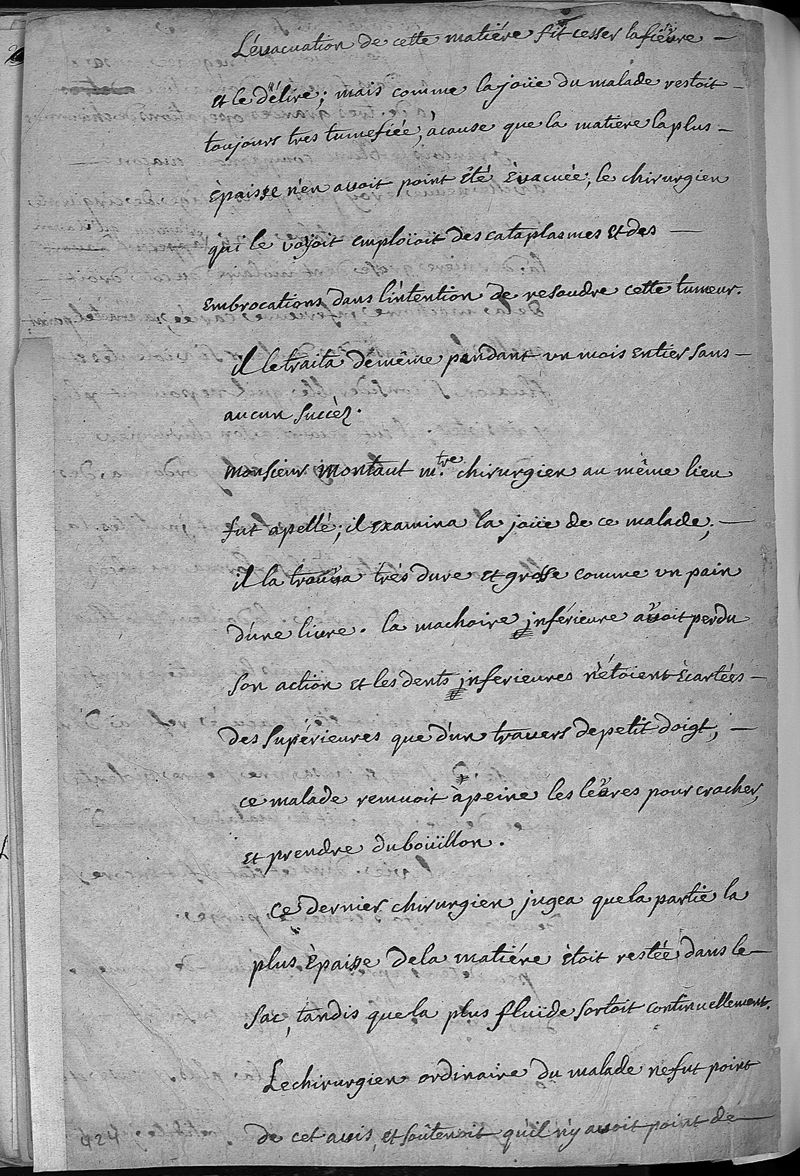 L'évacuation de cette matiére fit cesser la fiévre —
et le délire; mais comme la joüe du malade restoit —
toujours tres tumefiée, acause que la matiere la plus —
épaisse n'en avoit point été évacuée, le chirurgien
qui le voyoit emploïoit des cataplasmes et des —
embrocations dans l'intention de resoudre cette tumeur.
il le traita de même pendant un mois entier sans —
aucun succèz.
monsieur montaut m.tre chirurgien au même lieu
fut apellé; il examina la joüe de ce malade; —
il la trouva trés dure et grosse comme un pain
d'une livre. la machoire inférieure avoit perdu
son action et les dents inferieures n'étoient écartées —
des supérieures que d'un travers de petit doigt; —
ce malade remuoit à peine les levres pour cracher,
et prendre du boüillon.
ce dernier chirurgien jugea que la partie la
plus épaisse de la matiére étoit restée dans le —
sac, tandis que la plus fluïde sortoit continuellement.
Le chirurgien ordinaire du malade ne fut point
de cet avis, et soûtenoit qu'il n'y avoit point de —
424